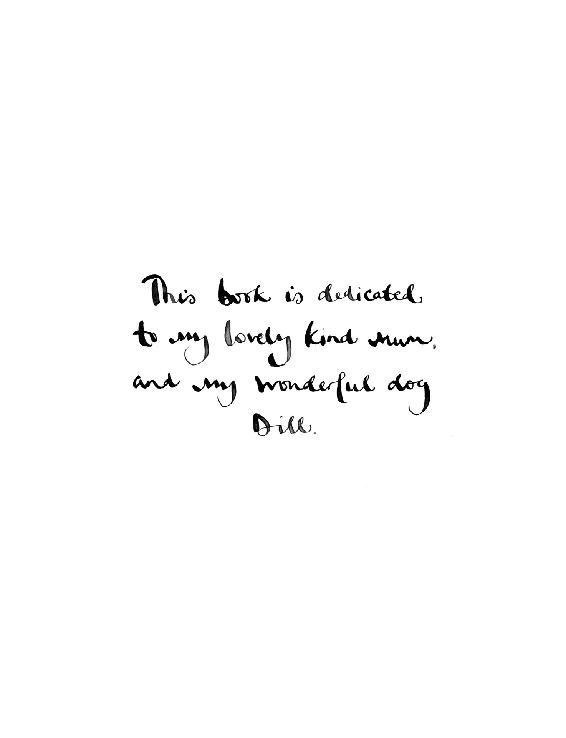 This book is dedicated
to my lovely kind mum,
and my wonderful dog
Dill.